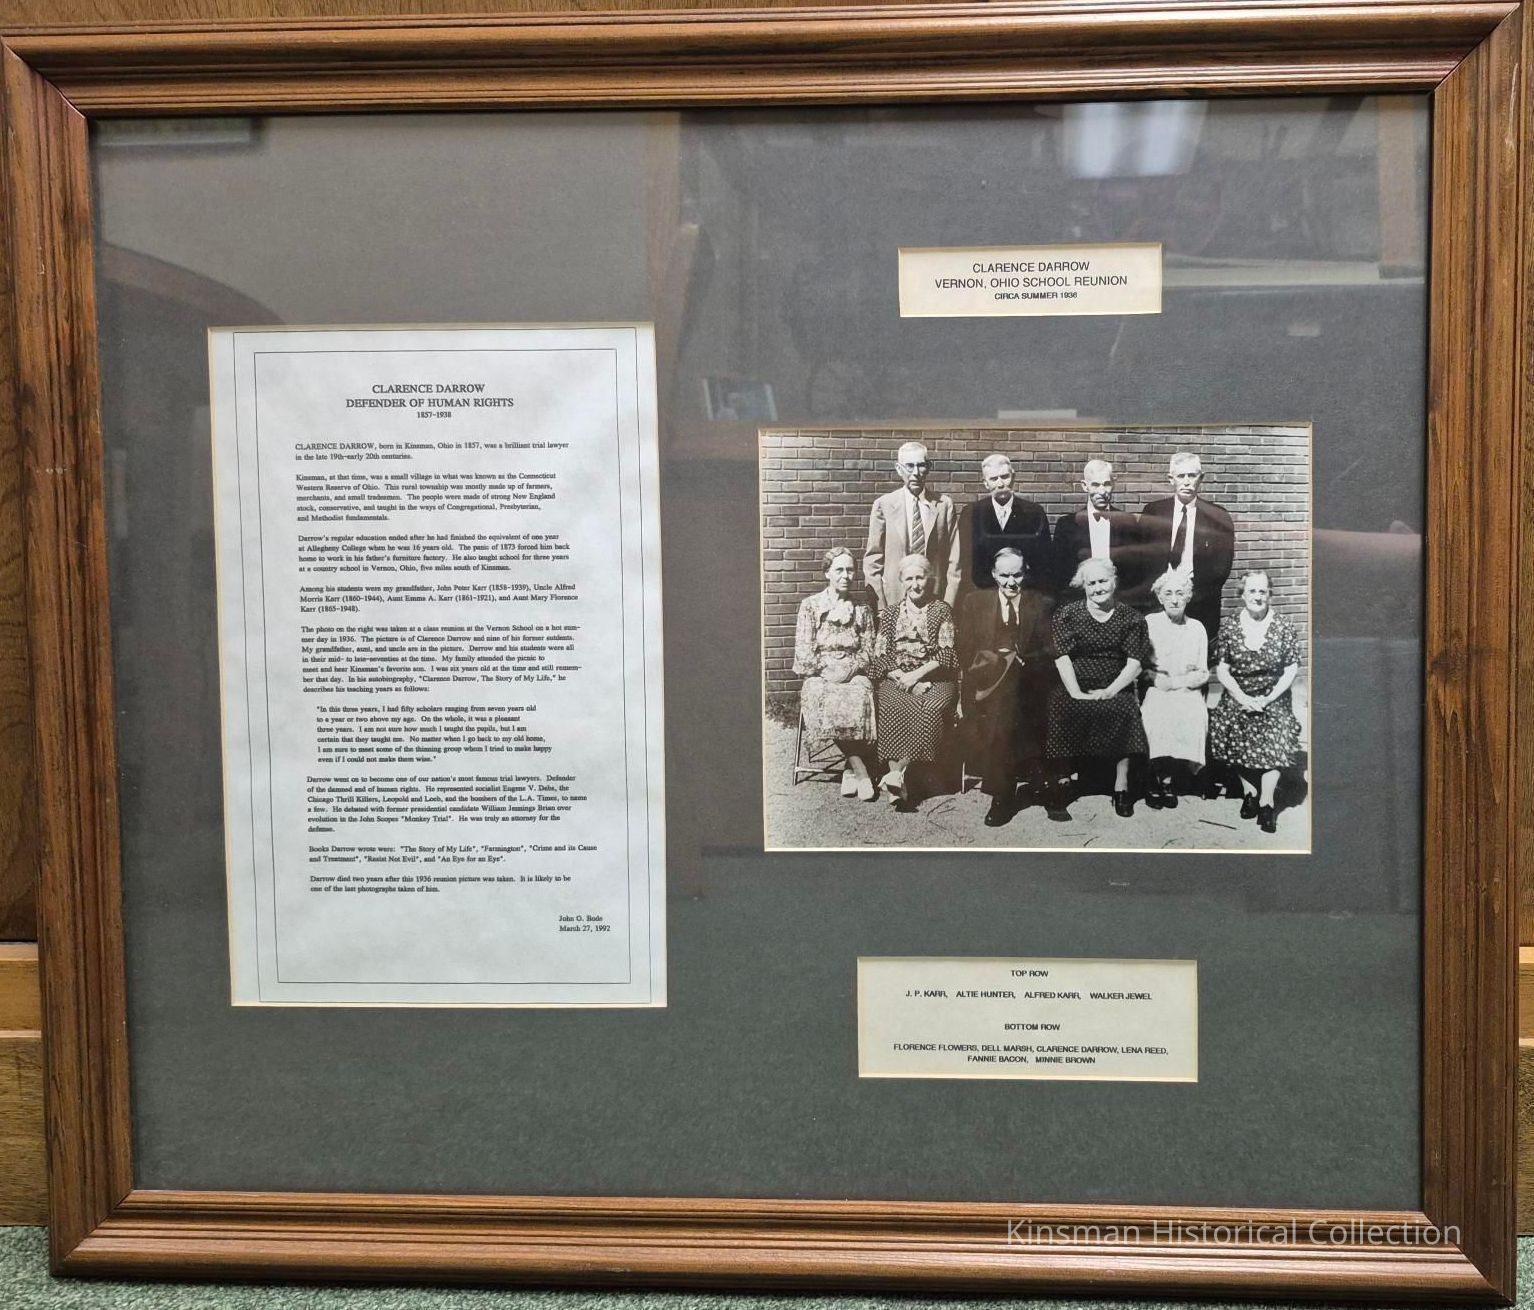 CLARENCE DARROW
DEFENDER OF HUMAN RIGHTS
1857-1938
CLARENCE DARROW, born in Kinsman, Ohio in 1857, was a brilliant trial lawyer
in the late 19th-early 20th centuries.
Kinsman, at that time, was a small village in what was known as the Connecticut
Western Reserve of Ohio. This rural township was mostly made up of farmers,
merchants, and small tradesmen. The people were made of strong New England
stock, conservative, and taught in the ways of Congregational, Presbyterian,
and Methodist fundamentals.
Darrow's regular education ended after he had finished the equivalent of one year
at Allegheny College when he was 16 years old. The panic of 1873 forced him back
home to work in his father's furniture factory. He also taught school for three years
at a country school in Vernon, Ohio, five miles south of Kinsman.
Among his students were my grandfather, John Peter Karr (1858-1939), Uncle Alfred
Morris Karr (1860-1944), Aunt Emma A. Karr (1861-1921), and Aunt Mary Florence
Karr (1865-1948).
The photo on the right was taken at a class reunion at the Vernon School on a hot sum-
mer day in 1936. The picture is of Clarence Darrow and nine of his former sutdents.
My grandfather, aunt, and uncle are in the picture. Derrow and his students were all
in their mid- to late-seventies at the time. My family attended the picnic to
meet and hear Kinsman's favorite son. I was six years old at the time and still remem-
ber that day. In his autobiography, "Clarence Darrow, The Story of My Life," he
describes his teaching years as follows:
"In this three years, I had fifty scholars ranging from seven years old
to a year or two above my age. On the whole, it was a pleasant
three years. I am not sure how much I taught the pupils, but I am
certain that they taught me. No matter when I go back to my old home,
I am sure to meet some of the thinning group whom I tried to make happy
even if I could not make them wise."
Darrow went on to become one of our nation's most famous trial lawyers. Defender
of the damned and of human rights. He represented socialist Eugene V. Debs, the
Chicago Thrill Killers, Leopold and Loeb, and the bombers of the L.A. Times, to name
a few. He debated with former presidential candidate William Jennings Brian over
evolution in the John Scopes "Monkey Trial". He was truly an attorney for the
defense.
Books Darrow wrote were: "The Story of My Life", "Farmington", "Crime and its Cause
and Treatment", "Resist Not Evil", and "An Eye for an Eye".
Darrow died two years after this 1936 reunion picture was taken. It is likely to be
one of the last photographs taken of him.
John G. Bode
March 27, 1992
CLARENCE DARROW
VERNON, OHIO SCHOOL REUNION
CIRCA SUMMER 1936
TOP ROW
J. P. KARR, ALTIE HUNTER, ALFRED KARR, WALKER JEWEL
BOTTOM ROW
FLORENCE FLOWERS, DELL MARSH, CLARENCE DARROW, LENA REED,
FANNIE BACON, MINNIE BROWN
Kinsman Historical Collection